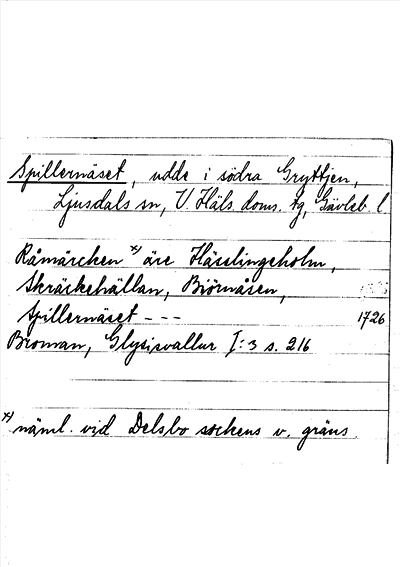 Spillernäset, udde i södra Gryttjen,
Ljusdals sn, V. Häls. doms. tg, Gävleb. l
Råmärchen x) äre Hässlingeholm,
Skräckehällan, Biörnåsen,
Spillernäset - - - 1726
Broman, Glysisvallur I:3 s. 216
x) näml. vid Delsbo sockens v. gräns.